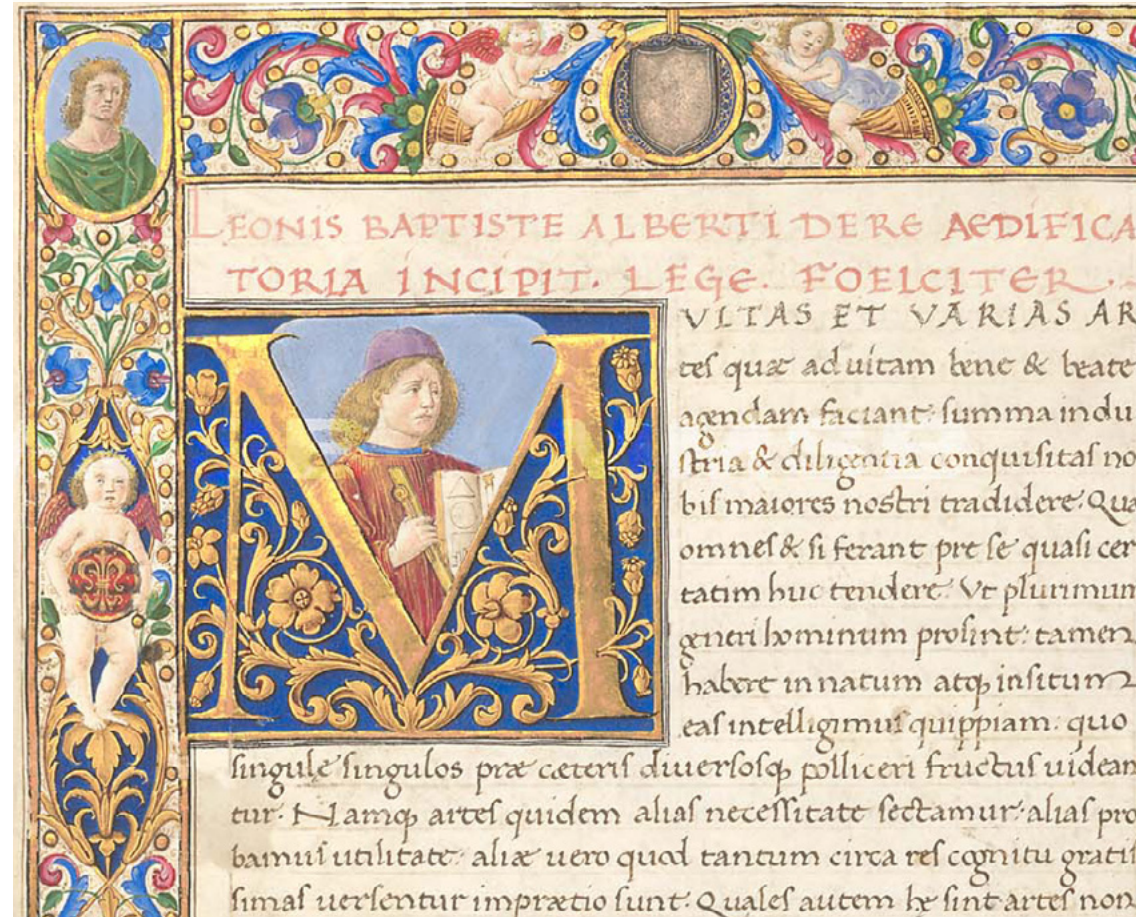 LEONIS BAPTISTE ALBERTI DERE AEDIFICA
TORIA INCIPIT. LEGE. FOELCITER.
MVLTAS ET VARIAS AR
tes quæ ad uitam bene & beate
agendam faciant: summa indu
stria & diligentia conquisitas no
bis maiores nostri tradidere. Qua
omnes & si ferant pre se quasi cer
tatim huc tendere: Vt plurimum
generi hominum prosint: tamen
habere innatum atq insitum
eas intelligimus quippiam: quo
singule singulos præ cæteris diuersosq polliceri fructus uidean
tur. Namq artes quidem alias necessitate sectamur: alias pro
bamus utilitate: aliæ uero quod tantum circa res cognitu gratis
simas uersentur impræcio sunt. Quales autem he sint artes non